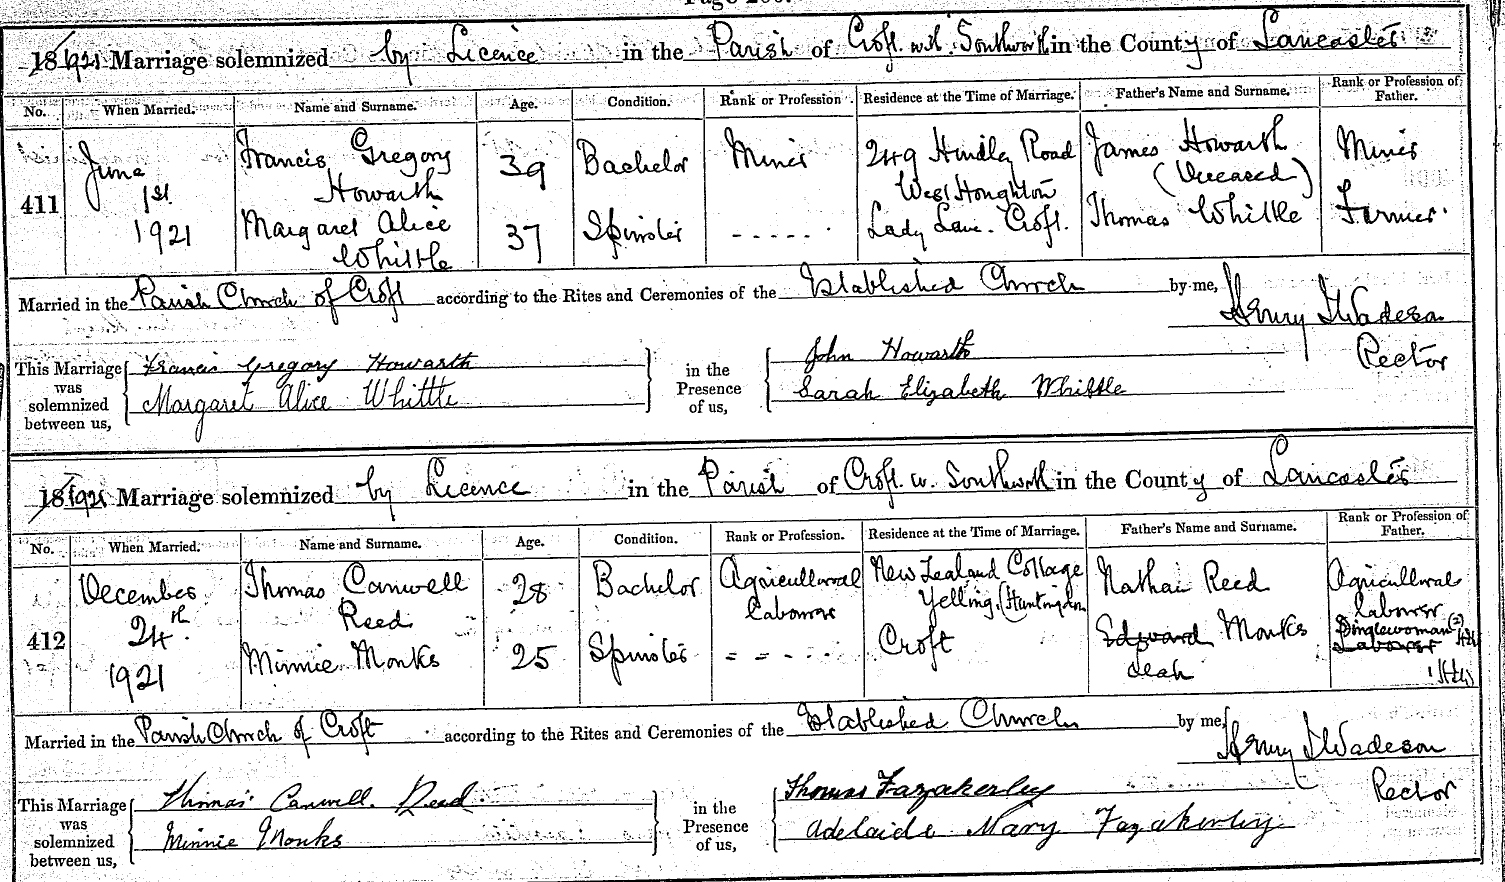 1921 Marriage solemnized by Licence in the Parish of Croft with Southworth in the County of Lancaster
No. When Married. Name and Surname. Age. Condition. Rank or Profession. Residence at the Time of Marriage. Father's Name and Surname. Rank or Profession of Father.
411 June 1st 1921 Francis Gregory Howarth 39 Bachelor Miner 249 Hindley Road West Houghton James Howarth (Deceased) Miner
Margaret Alice Whittle 37 Spinster - - - - - - Lady Lane. Croft. Thomas Whittle Farmer
Married in the Parish Church of Croft according to the Rites and Ceremonies of the Established Church by me,
Henry J Wadeson
Rector
This Marriage was solemnized between us,
Francis Gregory Howarth
Margaret Alice Whittle
in the Presence of us,
John Howarth
Sarah Elizabeth Whittle
1921 Marriage solemnized by Licence in the Parish of Croft w. Southworth in the County of Lancaster
No. When Married. Name and Surname. Age. Condition. Rank or Profession. Residence at the Time of Marriage. Father's Name and Surname. Rank or Profession of Father.
412 December 24th 1921 Thomas Canwell Reed 28 Bachelor Agricultural Labourer New Zealand Cottage Yelling. (Huntingdon Nathan Reed Agricultural Labourer
Minnie Monks 25 Spinster - - - - - Croft Edward Monks Leah Singlewoman (2) Labourer
Married in the Parish Church of Croft according to the Rites and Ceremonies of the Established Church by me,
Henry J Wadeson
Rector
This Marriage was solemnized between us,
Thomas Canwell Reed
Minnie Monks
in the Presence of us,
Thomas Fazakerley
Adelaide Mary Fazakerley